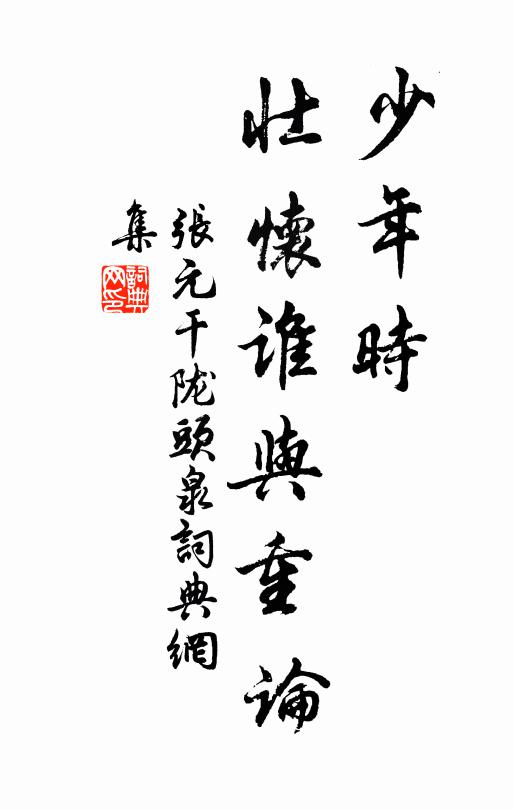 少年時
壯懷誰與重論
張元干陇頭泉詞典網
集
詞典网印